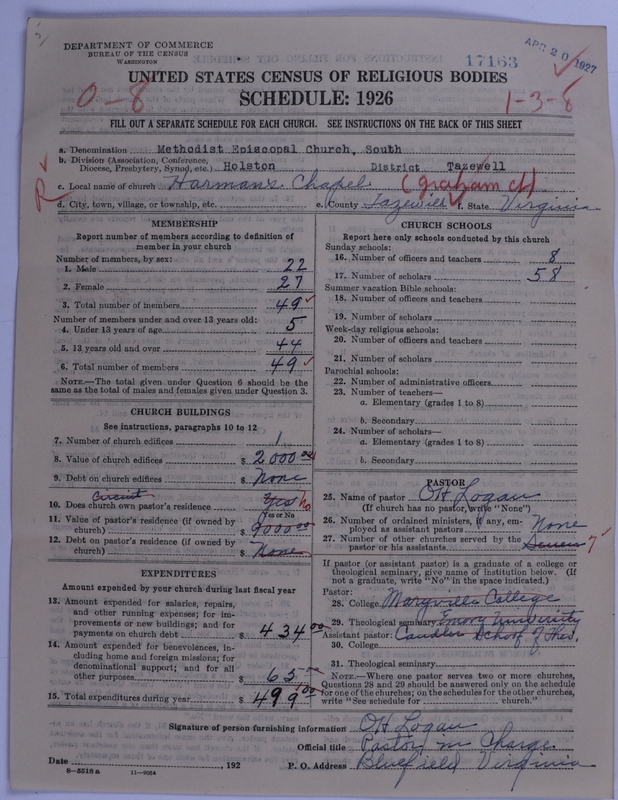 DEPARTMENT OF COMMERCE
BUREAU OF THE CENSUS
WASHINGTON
17163
APR 20 1927
UNITED STATES CENSUS OF RELIGIOUS BODIES
SCHEDULE: 1926
0-8
1-3-8
FILL OUT A SEPARATE SCHEDULE FOR EACH CHURCH. SEE INSTRUCTIONS ON THE BACK OF THIS SHEET
a. Denomination Methodist Episcopal Church, South
b. Division (Association, Conference, Diocese, Presbytery, Synod, etc.) Holston District Tazewell
R
c. Local name of church Harmans Chapel (Graham Ct).
d. City, town, village, or township, etc. e. County Tazewell f. State Virginia
MEMBERSHIP
Report number of members according to definition of
member in your church
Number of members, by sex:
1. Male 22
2. Female 27
3. Total number of members 49
Number of members under and over 13 years old:
4. Under 13 years of age 5
5. 13 years old and over 44
6. Total number of members 49
NOTE.—The total given under Question 6 should be the
same as the total of males and females given under Question 3.
CHURCH BUILDINGS
See instructions, paragraphs 10 to 12
7. Number of church edifices 1
8. Value of church edifices $ 2000 00
9. Debt on church edifices $ None
Circuit
10. Does church own pastor's residence Yes No
Yes or No
11. Value of pastor's residence (if owned by
church) $ 9000 00
12. Debt on pastor's residence (if owned by
church) $ None
EXPENDITURES
Amount expended by your church during last fiscal year
13. Amount expended for salaries, repairs,
and other running expenses; for im-
provements or new buildings; and for
payments on church debt $ 434 00
14. Amount expended for benevolences, in-
cluding home and foreign missions; for
denominational support; and for all
other purposes $ 65 00
15. Total expenditures during year $ 499 00
CHURCH SCHOOLS
Report here only schools conducted by this church
Sunday schools:
16. Number of officers and teachers 8
17. Number of scholars 58
Summer vacation Bible schools:
18. Number of officers and teachers
19. Number of scholars
Week-day religious schools:
20. Number of officers and teachers
21. Number of scholars
Parochial schools:
22. Number of administrative officers
23. Number of teachers—
a. Elementary (grades 1 to 8)
b. Secondary
24. Number of scholars—
a. Elementary (grades 1 to 8)
b. Secondary
PASTOR
25. Name of pastor OH Logan
(If church has no pastor, write "None")
26. Number of ordained ministers, if any, em-
ployed as assistant pastors None
27. Number of other churches served by the
pastor or his assistants Seven 7
If pastor (or assistant pastor) is a graduate of a college or
theological seminary, give name of institution below. (If
not a graduate, write "No" in the space indicated.)
Pastor:
28. College Maryville College
29. Theological seminary Emory University
Assistant pastor: Candler School of Theo.
30. College
31. Theological seminary
NOTE.—Where one pastor serves two or more churches,
Questions 28 and 29 should be answered only on the schedule
for one of the churches; on the schedules for the other churches,
write "See schedule for church."
Signature of person furnishing information OH Logan
Official title Pastor in Charge
Date , 192 P. O. Address Bluefield Virginia
8-5518 a 11-9054